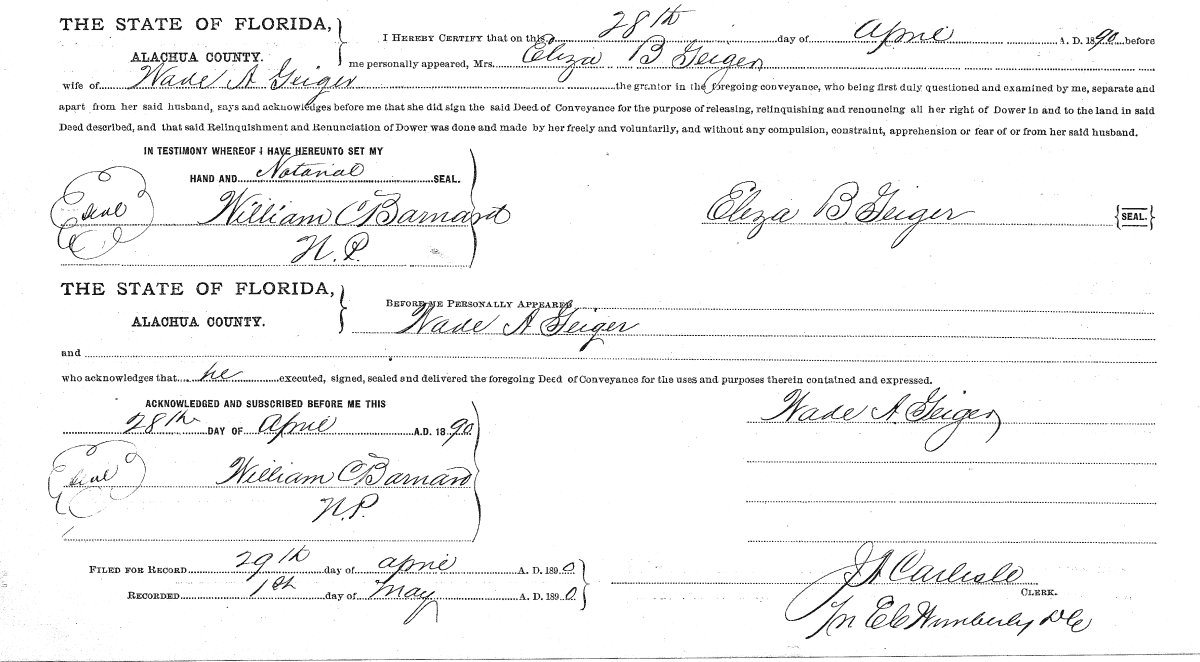 THE STATE OF FLORIDA,
ALACHUA COUNTY.
I HEREBY CERTIFY that on this 28th day of April A. D. 1890 before
me personally appeared, Mrs. Eliza B Geiger
wife of Wade A Geiger the grantor in the foregoing conveyance, who being first duly questioned and examined by me, separate and
apart from her said husband, says and acknowledges before me that she did sign the said Deed of Conveyance for the purpose of releasing, relinquishing and renouncing all her right of Dower in and to the land in said
Deed described, and that said Relinquishment and Renunciation of Dower was done and made by her freely and voluntarily, and without any compulsion, constraint, apprehension or fear of or from her said husband.
IN TESTIMONY WHEREOF I HAVE HEREUNTO SET MY
HAND AND Notarial SEAL.
Seal William C Barnard
N.P.
Eliza B Geiger {SEAL.}
THE STATE OF FLORIDA,
ALACHUA COUNTY.
BEFORE ME PERSONALLY APPEARED
Wade A Geiger
and
who acknowledges that he executed, signed, sealed and delivered the foregoing Deed of Conveyance for the uses and purposes therein contained and expressed.
ACKNOWLEDGED AND SUBSCRIBED BEFORE ME THIS
28th DAY OF April A.D. 1890
Seal William C Barnard
N.P.
Wade A. Geiger
FILED FOR RECORD 29th day of april A. D. 1890
RECORDED 1st day of May A. D. 1890.
J A Carlisle
CLERK.
Wimberly DC